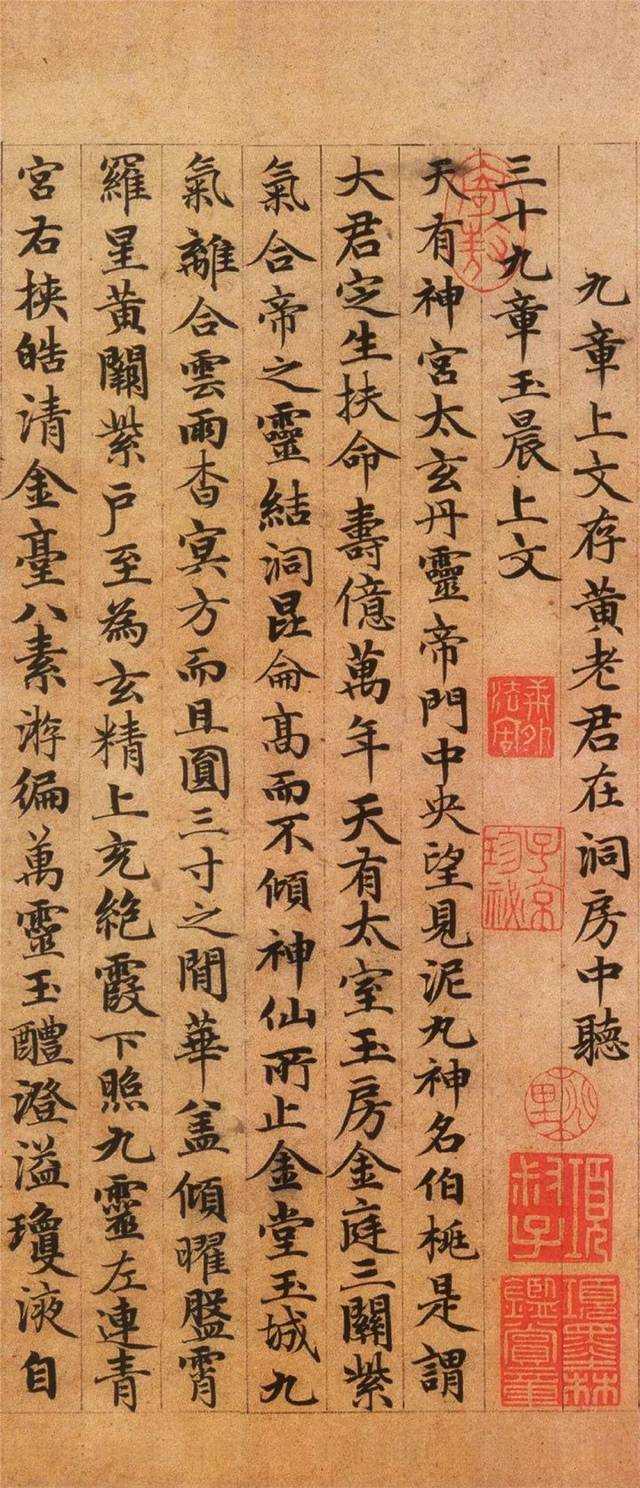 九章上文存黄老君在洞房中聽
三十九章玉晨上文
天有神宮太玄丹靈帝門中央望見泥丸神名伯桃是謂
大君定生扶命壽億萬年天有太室玉房金庭三關紫
氣合帝之靈結洞昆侖髙而不傾神仙所止金堂玉城九
氣離合雲雨杳冥方而且圓三寸之間華盖傾曜盤霄
羅星黄闕紫户至為玄精上充絶霞下照九靈左連青
宮右挾皓清金臺八素游徧萬靈玉醴澄溢瓊液自
子京珍祕
項叔子
項墨林鑑賞章